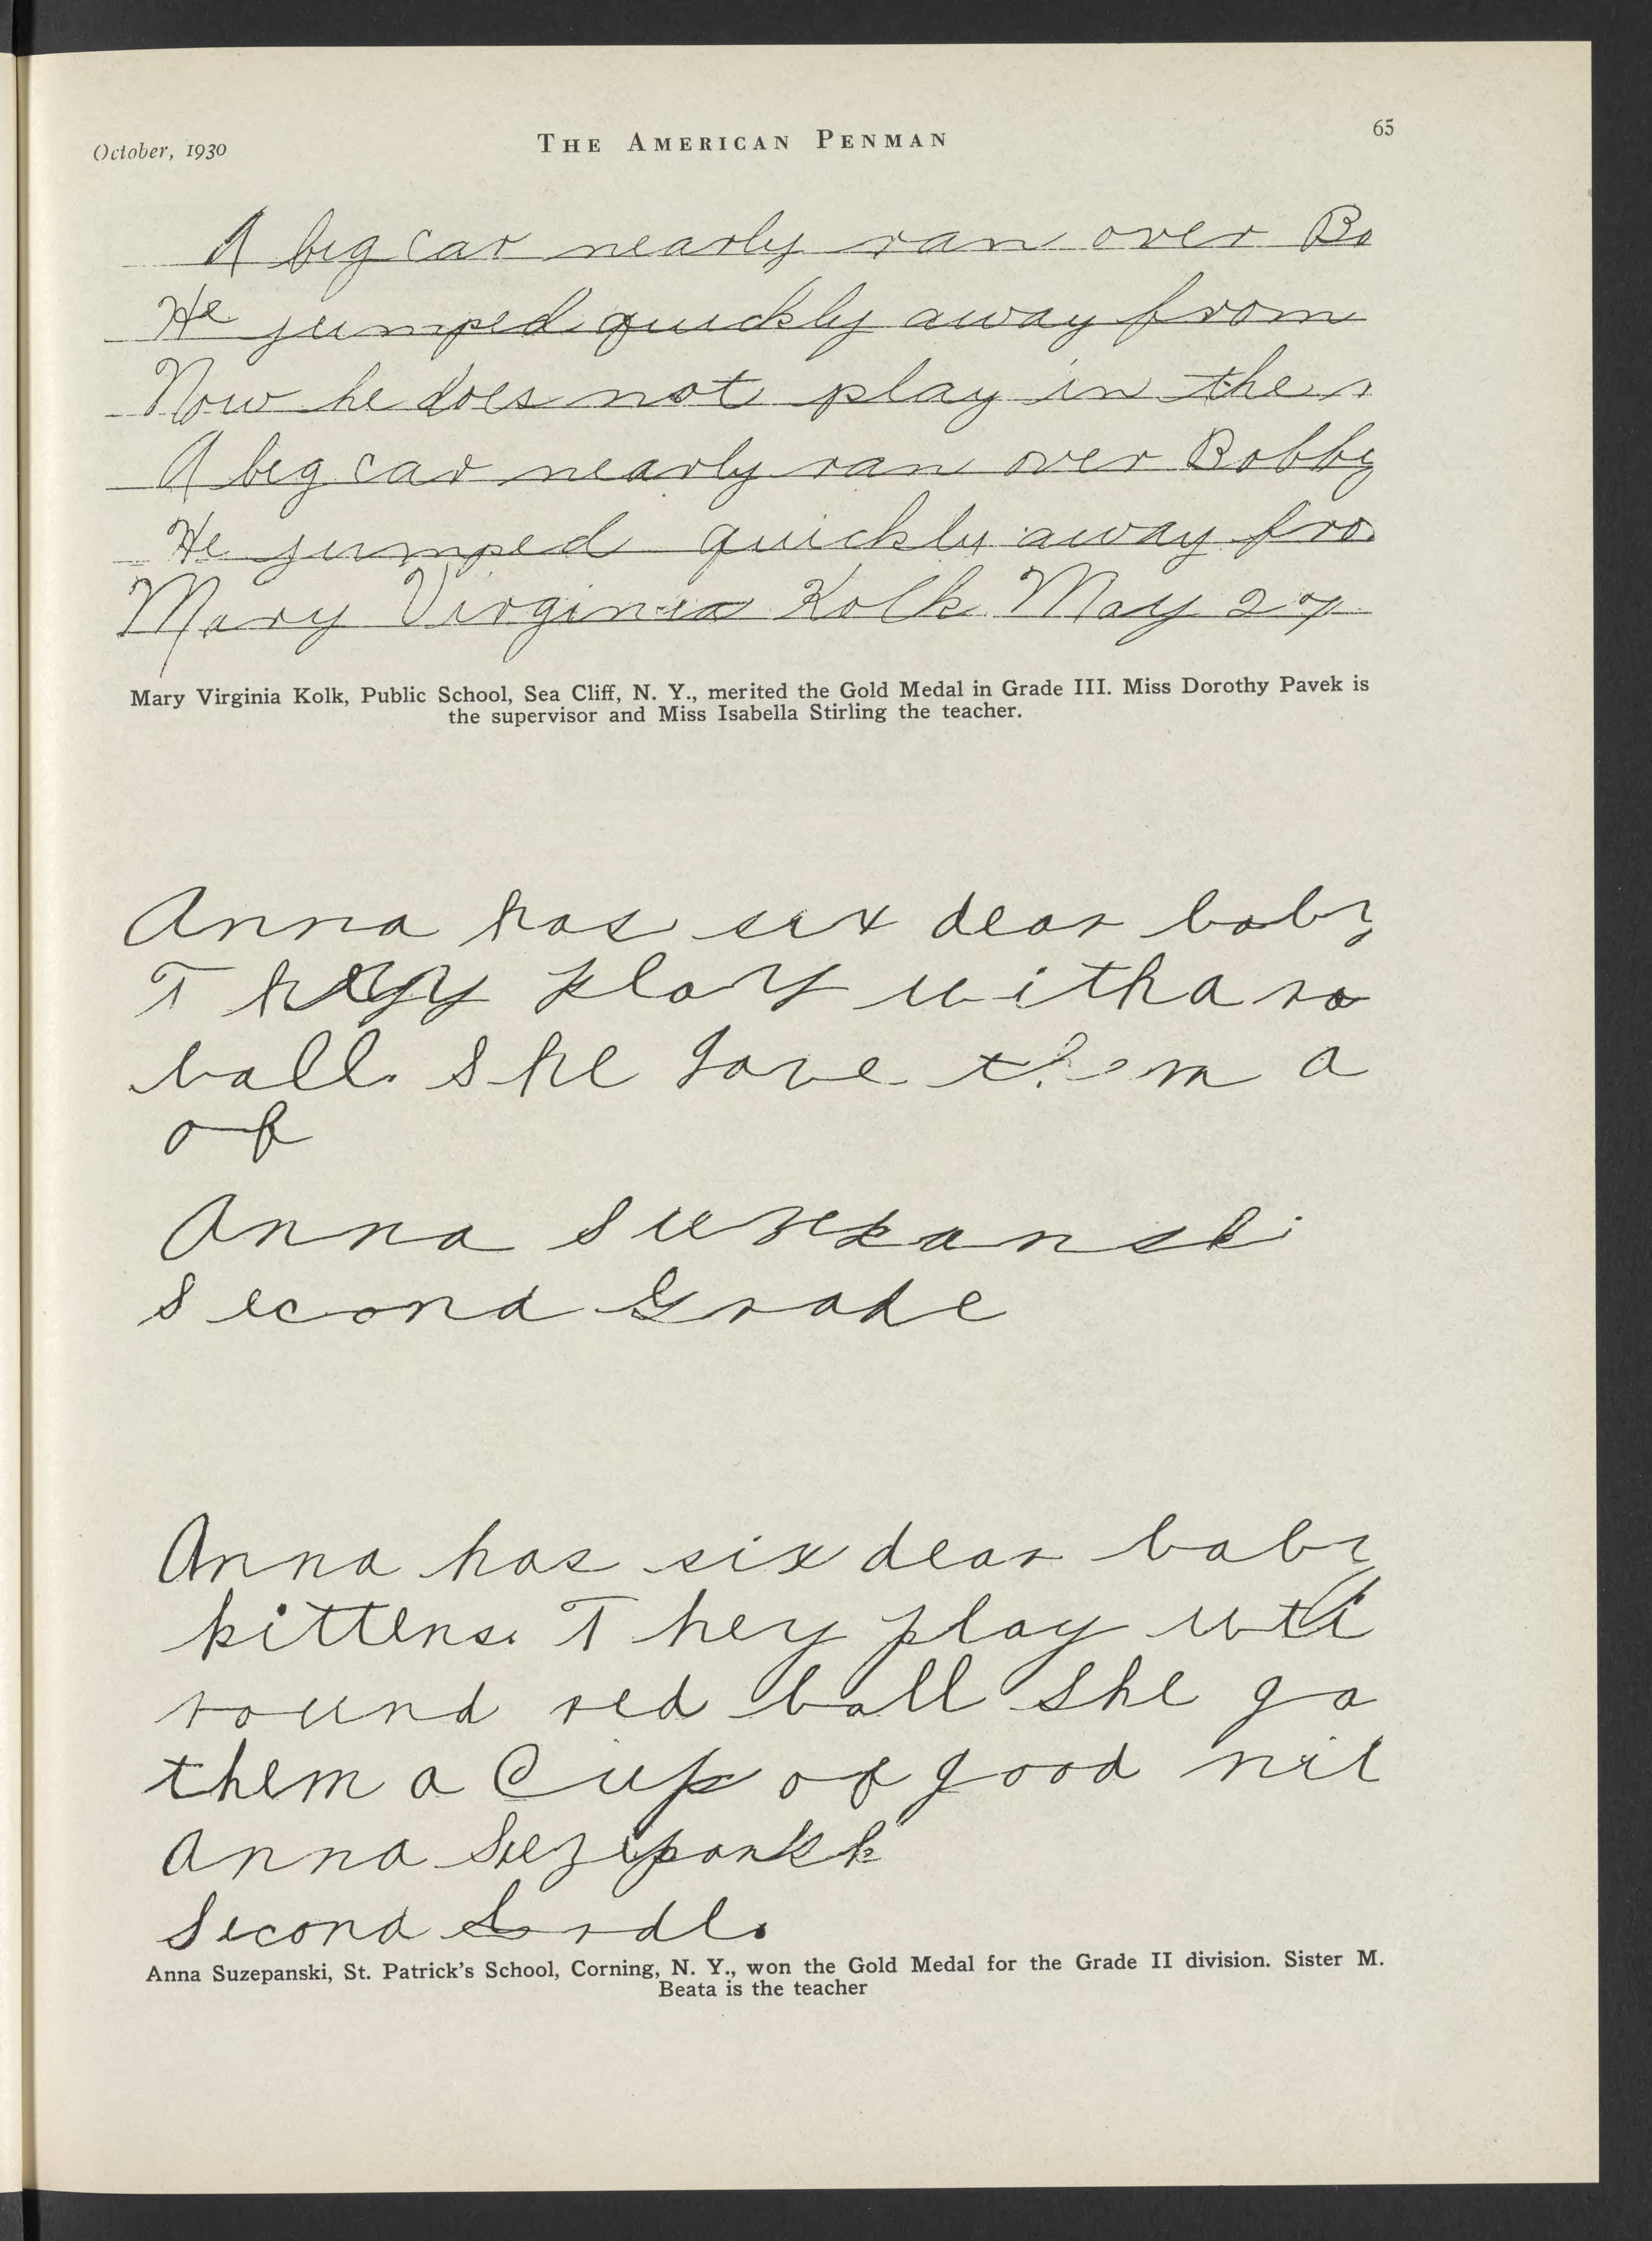 October, 1930
THE AMERICAN PENMAN
65
A big car nearly ran over Bo
He jumped quickly away from
Now he does not play in the r
A big car nearly ran over Bobby
He jumped quickly away fro
Mary Virginia Kolk May 27
Mary Virginia Kolk, Public School, Sea Cliff, N. Y., merited the Gold Medal in Grade III. Miss Dorothy Pavek is
the supervisor and Miss Isabella Stirling the teacher.
Anna has six dear baby
They play with a ro
ball. She gave them a
of
Anna Suzepanski
Second Grade
Anna has six dear baby
kittens. They play
round red ball She ga
them a Cup of good mil
Anna
Second
Anna Suzepanski, St. Patrick's School, Corning, N. Y., won the Gold Medal for the Grade II division. Sister M.
Beata is the teacher